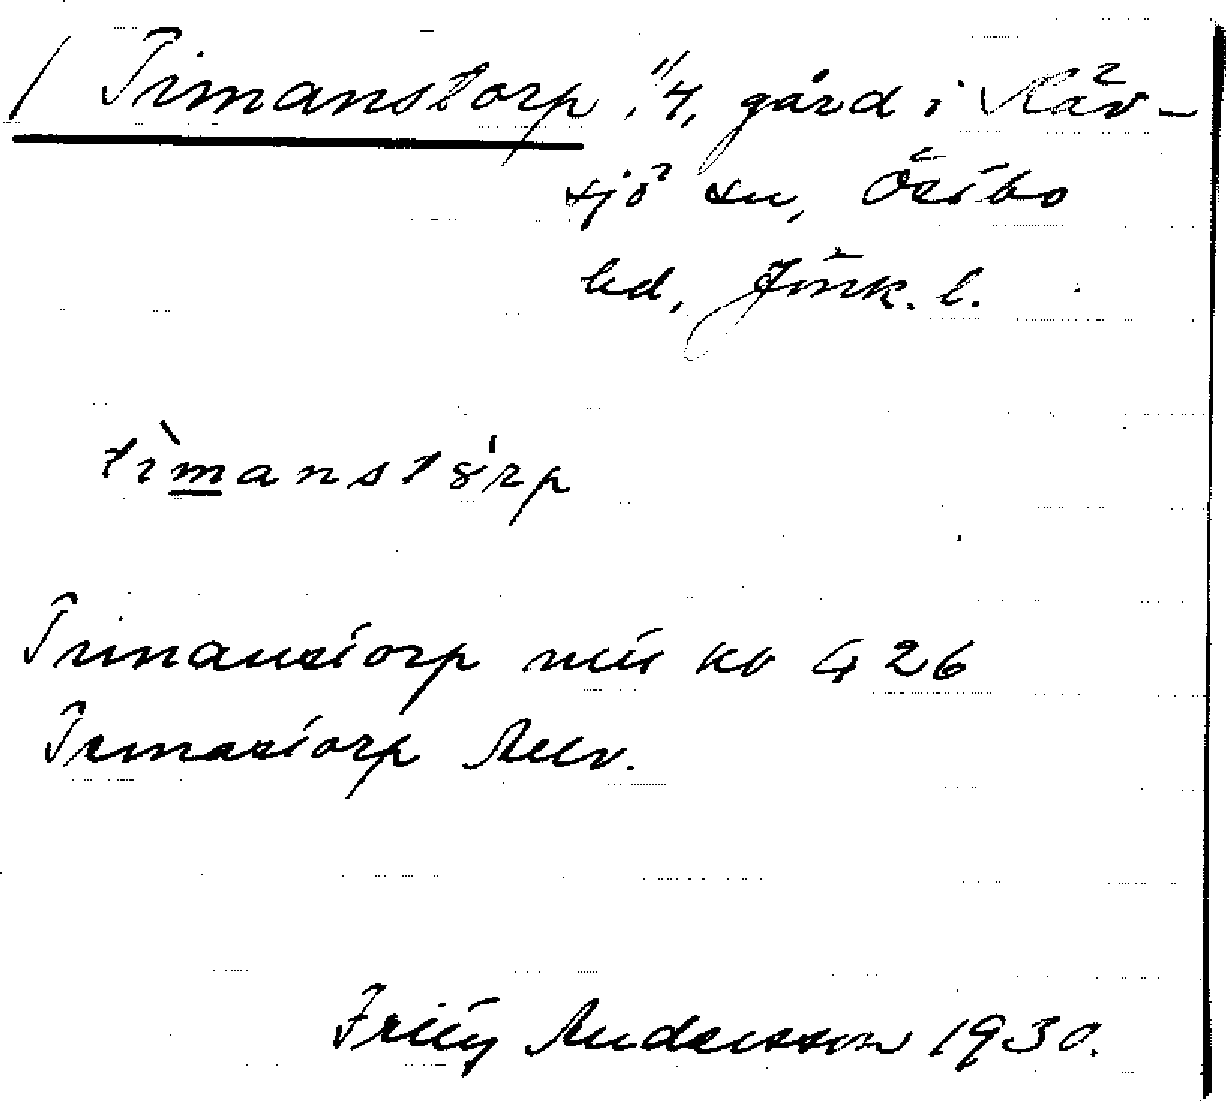 / Timanstorp 1/4, gård i Käv-
sjö sn, Östbo
hd, Jönk. l.
tìmanstórp
Timanstorp mtl kb G 26
Timastorp
Fritz Andersson 1930.